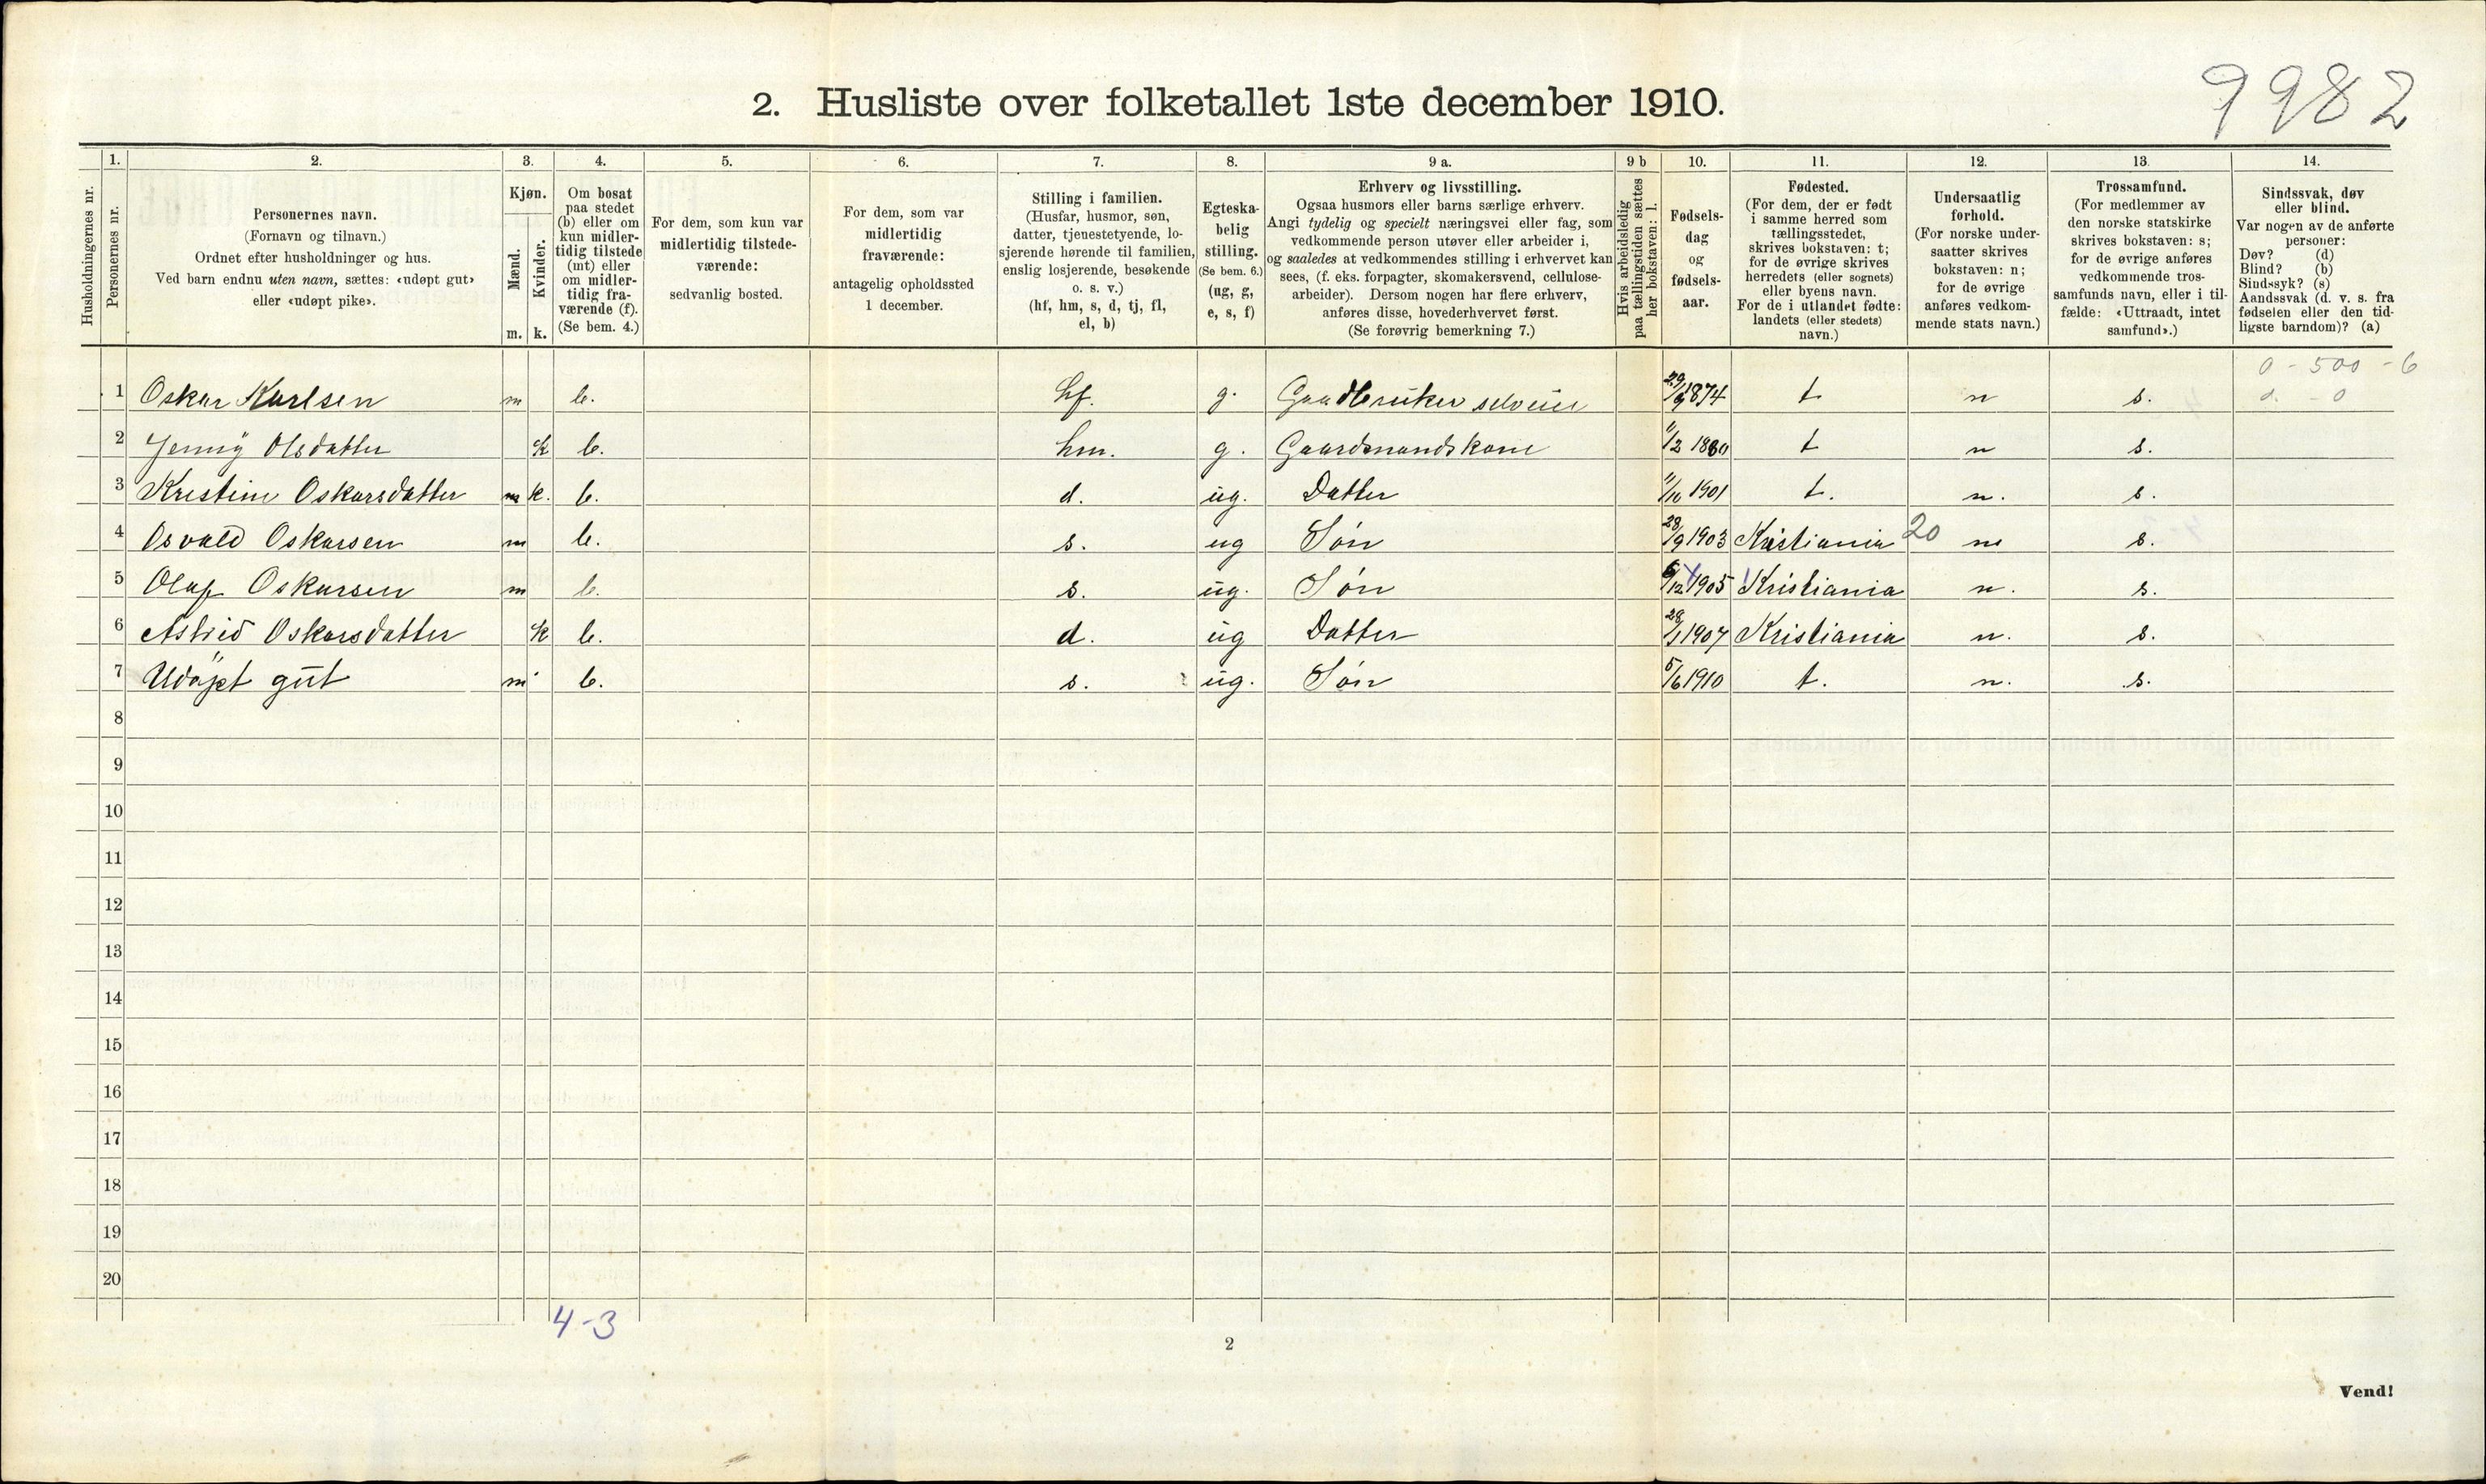 9982
2. Husliste over folketallet 1ste december 1910.
Husholdningernes nr.
1.
Personernes nr.
2.
Personernes navn.
(Fornavn og tilnavn.)
Ordnet efter husholdninger og hus.
Ved barn endnu uten navn, sættes: «udøpt gut»
eller «udøpt pike».
3.
Kjøn.
Mænd.
Kvinder.
m. k.
4.
Om bosat
paa stedet
(b) eller om
kun midler-
tidig tilstede
(mt) eller
om midler-
tidig fra-
værende (f).
(Se bem. 4.)
5.
For dem, som kun var
midlertidig tilstede-
værende:
sedvanlig bosted.
6.
For dem, som var
midlertidig
fraværende:
antagelig opholdssted
1 december.
7.
Stilling i familien.
(Husfar, husmor, søn,
datter, tjenestetyende, lo-
sjerende hørende til familien,
enslig losjerende, besøkende
o. s. v.)
(hf, hm, s, d, tj, fl,
el, b)
8.
Egteska-
belig
stilling.
(Se bem. 6.)
(ug, g,
e, s, f)
9 a.
Erhverv og livsstilling.
Ogsaa husmors eller barns særlige erhverv.
Angi tydelig og specielt næringsvei eller fag, som
vedkommende person utøver eller arbeider i,
og saaledes at vedkommendes stilling i erhvervet kan
sees, (f. eks. forpagter, skomakersvend, cellulose-
arbeider). Dersom nogen har flere erhverv,
anføres disse, hovederhvervet først.
(Se forøvrig bemerkning 7.)
9 b
Hvis arbeidsledig
paa tællingstiden sættes
her bokstaven: l.
10.
Fødsels-
dag
og
fødsels-
aar.
11.
Fødested.
(For dem, der er født
i samme herred som
tællingsstedet,
skrives bokstaven: t;
for de øvrige skrives
herredets (eller sognets)
eller byens navn.
For de i utlandet fødte:
landets (eller stedets)
navn.)
12.
Undersaatlig
forhold.
(For norske under-
saatter skrives
bokstaven: n;
for de øvrige
anføres vedkom-
mende stats navn.)
13.
Trossamfund.
(For medlemmer av
den norske statskirke
skrives bokstaven: s;
for de øvrige anføres
vedkommende tros-
samfunds navn, eller i til-
fælde: «Uttraadt, intet
samfund».)
14.
Sindssvak, døv
eller blind.
Var nogen av de anførte
personer:
Døv? (d)
Blind? (b)
Sindssyk? (s)
Aandssvak (d. v. s. fra
fødselen eller den tid-
ligste barndom)? (a)
0 - 500 - 6
1 Oskar Karlsen m b. hf. g. Gaadbruker selveier 1874 t n s. d. - 0
2 Jenny Olsdatter k b. hm. g. Gaardmandskone 11/2 1880 t n s.
3 Kristine Oskarsdatter m k. b. d. ug. Datter 1901 t. n. s.
4 Osvald Oskarsen m b. s. ug Søn 28/9 1903 Kristiania 20 n s.
5 Olaf Oskarsen m b. s. ug. Søn 6/12 1905 Kristiania n. s.
6 Astrid Oskarsdatter k b. d. ug Datter 28/1 1907 Kristiania n. s.
7 Udøpt gut m b. s. ug. Søn 5/6 1910 t. n. s.
8
9
10
11
12
13
14
15
16
17
18
19
20
4-3
2
Vend!